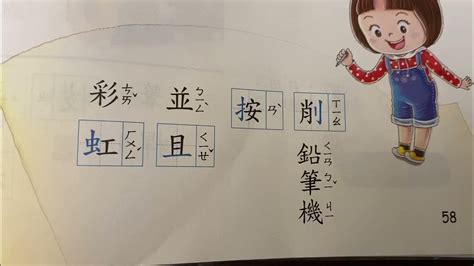 削ㄒㄧㄠ鉛ㄑㄧㄢ筆ㄅㄧˇ機ㄐㄧ
按ㄢˋ
並ㄅㄧㄥˋ且ㄑㄧㄝˇ
彩ㄘㄞˇ虹ㄏㄨㄥˊ
58